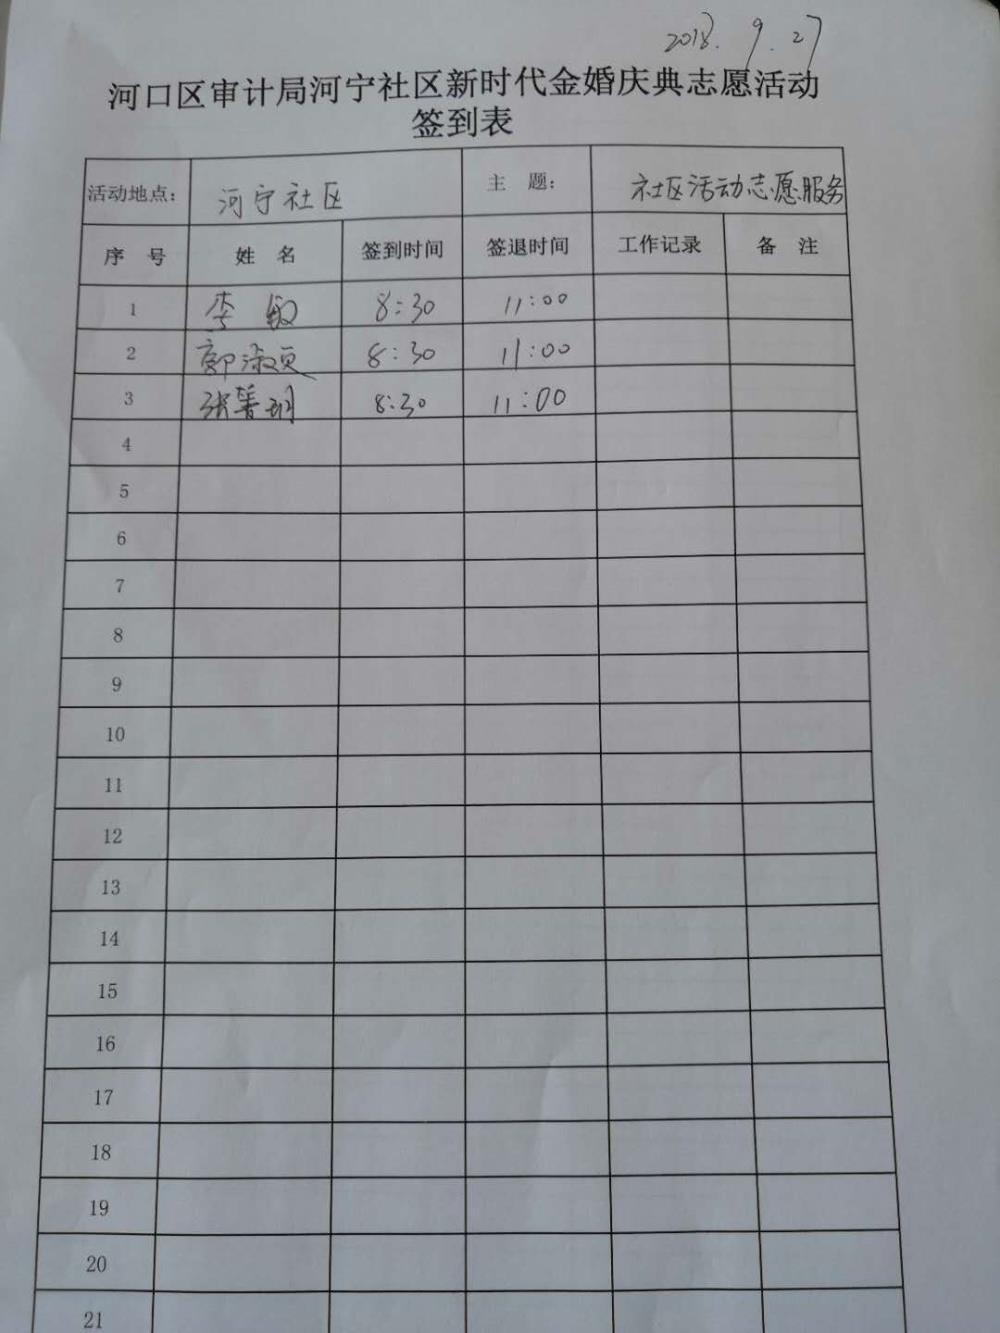 2018.9.27
河口区审计局河宁社区新时代金婚庆典志愿活动
签到表
活动地点: 河宁社区 主 题: 社区活动志愿服务
序 号 姓 名 签到时间 签退时间 工作记录 备 注
1 李敏 8:30 11:00
2 郭淑贞 8:30 11:00
3 张 8:30 11:00
4
5
6
7
8
9
10
11
12
13
14
15
16
17
18
19
20
21